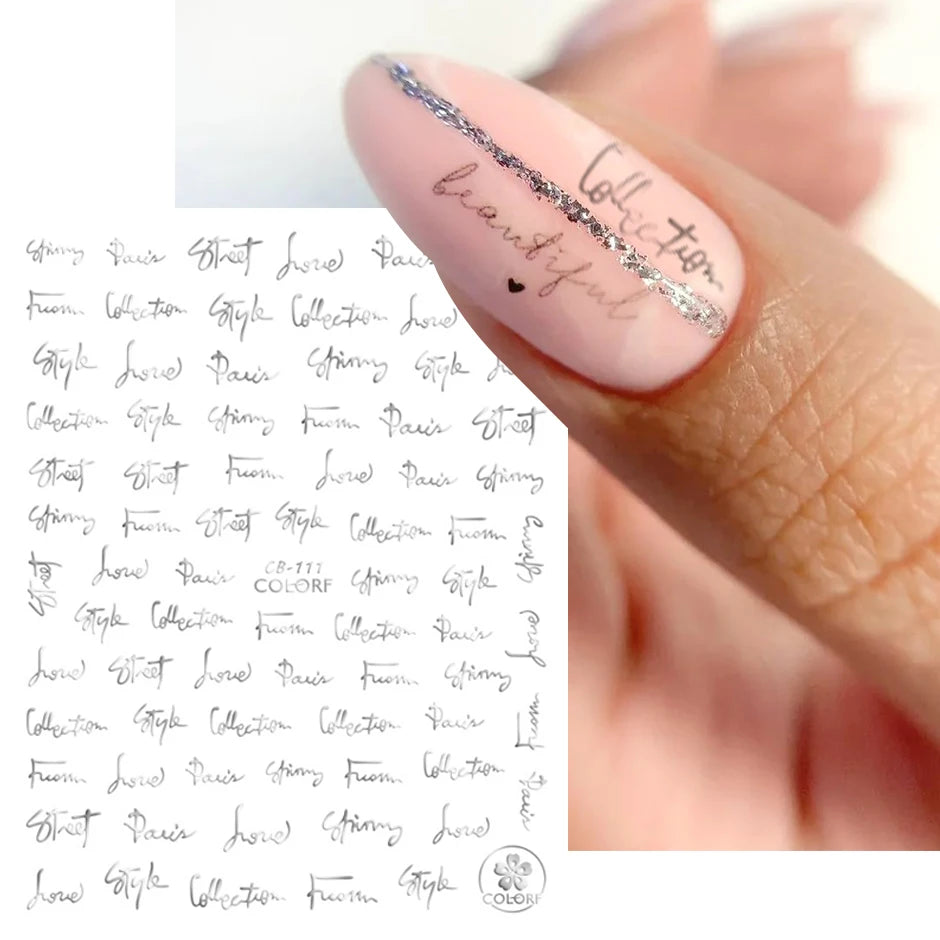 Collection
beautiful
Paris Street Love
From Collection Style Collection Love
Style Love Paris Style
Collection Style From Paris Street
Street Street From Love Paris
From Street Style Collection From
Street Love Paris CB-111 Style
COLORF
Style Collection From Collection Paris
Love
Love Street Love Paris From
Collection Style Collection Collection Paris
From
From Love Paris From Collection
Paris
Street Paris Love Love
Love Style Collection From Style
COLORF